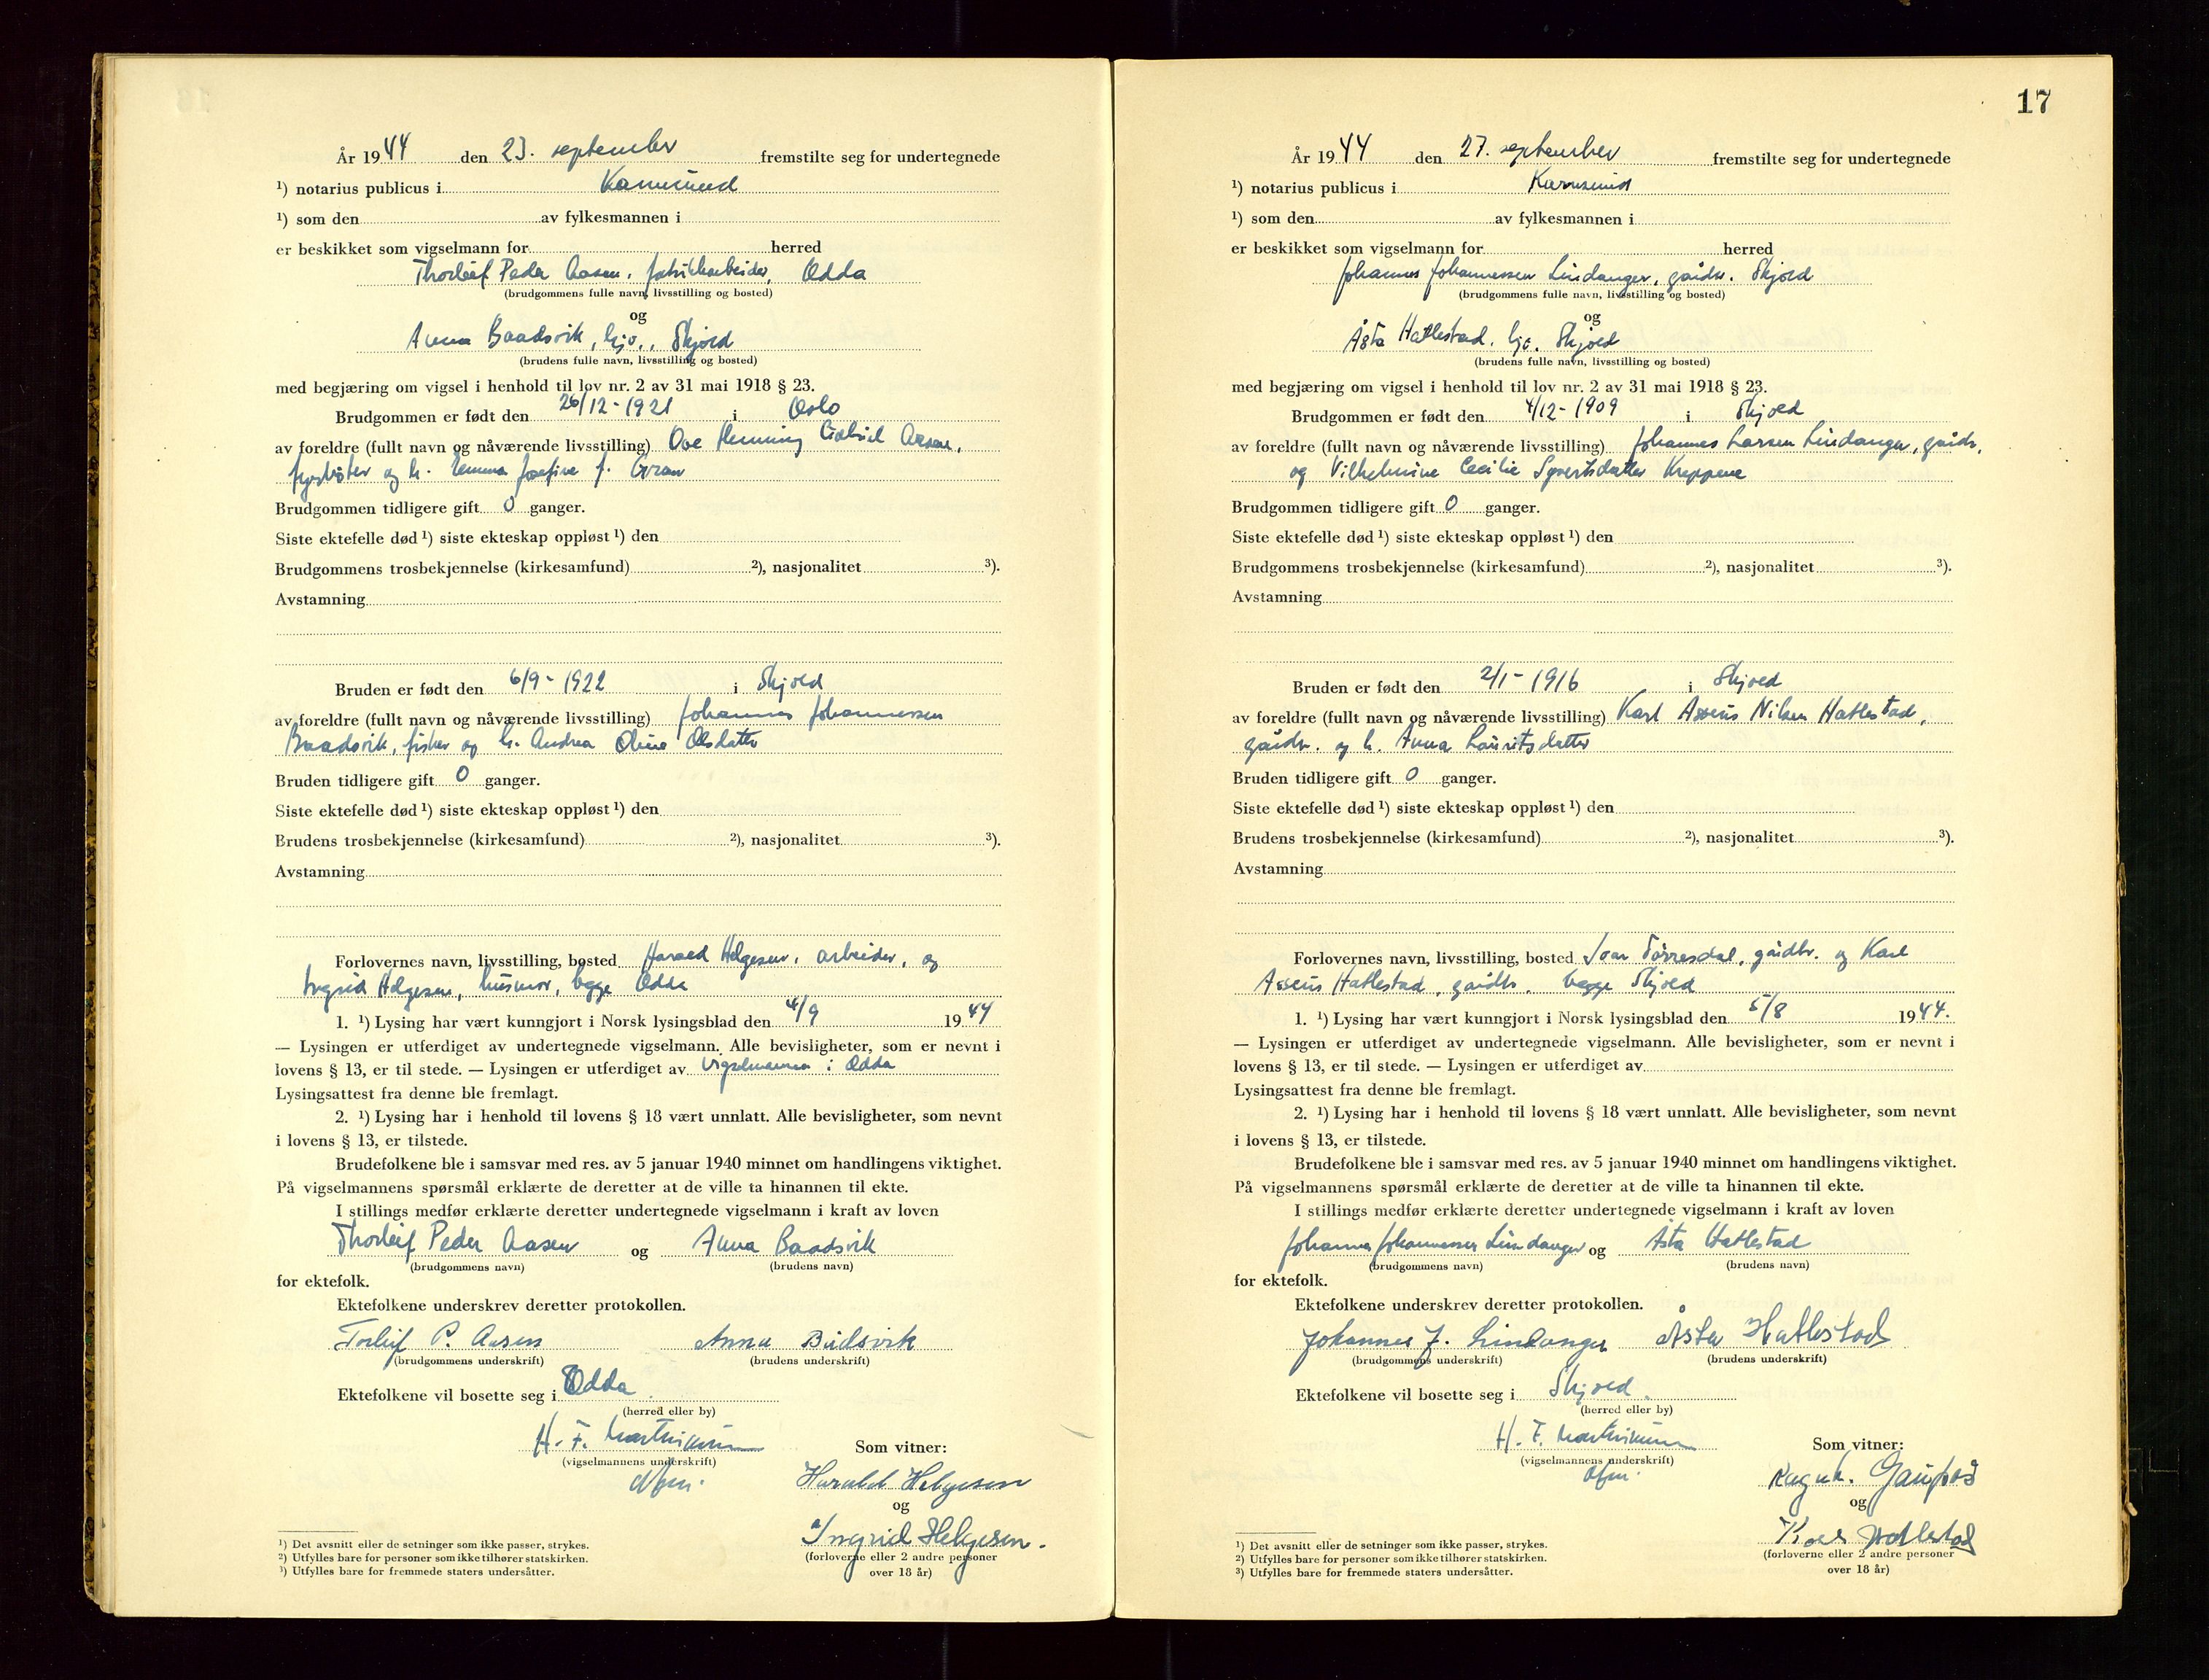 År 1944 den 23. september fremstilte seg for undertegnede
1) notarius publicus i Karmsund
1) som den av fylkesmannen i
er beskikket som vigselmann for herred
Thorleif Peder Aasen, fabrikkarbeider, Odda
(brudgommens fulle navn, livsstilling og bosted)
og
Anna Baadsvik, hjv., Skjold
(brudens fulle navn, livsstilling og bosted)
med begjæring om vigsel i henhold til lov nr. 2 av 31 mai 1918 § 23.
Brudgommen er født den 26/12-1921 i Oslo
av foreldre (fullt navn og nåværende livsstilling) Ove Henning Gabriel Aasen,
fyrbøter og h. Emma Josefine f. Gran
Brudgommen tidligere gift 0 ganger.
Siste ektefelle død 1) siste ekteskap oppløst 1) den
Brudgommens trosbekjennelse (kirkesamfund) 2), nasjonalitet 3).
Avstamning
Bruden er født den 6/9-1922 i Skjold
av foreldre (fullt navn og nåværende livsstilling) Johannes Johannessen
Baadsvik, fisker og h. Andrea Oline Olsdatter
Bruden tidligere gift 0 ganger.
Siste ektefelle død 1) siste ekteskap oppløst 1) den
Brudens trosbekjennelse (kirkesamfund) 2), nasjonalitet 3).
Avstamning
Forlovernes navn, livsstilling, bosted Harald Helgesen, arbeider, og
Ingrid Helgesen, husmor, begge Odda
1. 1) Lysing har vært kunngjort i Norsk lysingsblad den 4/9 1944
— Lysingen er utferdiget av undertegnede vigselmann. Alle bevisligheter, som er nevnt i
lovens § 13, er til stede. — Lysingen er utferdiget av vigselmannen i Odda
Lysingsattest fra denne ble fremlagt.
2. 1) Lysing har i henhold til lovens § 18 vært unnlatt. Alle bevisligheter, som nevnt
i lovens § 13, er tilstede.
Brudefolkene ble i samsvar med res. av 5 januar 1940 minnet om handlingens viktighet.
På vigselmannens spørsmål erklærte de deretter at de ville ta hinannen til ekte.
I stillings medfør erklærte deretter undertegnede vigselmann i kraft av loven
Thorleif Peder Aasen og Anna Baadsvik
(brudgommens navn) (brudens navn)
for ektefolk.
Ektefolkene underskrev deretter protokollen.
Torleif P. Aasen Anna Bådsvik
(brudgommens underskrift) (brudens underskrift)
Ektefolkene vil bosette seg i Odda.
(herred eller by)
H. F. Som vitner:
(vigselmannens underskrift)
Harald Helgesen
og
Ingrid Helgesen.
(forloverne eller 2 andre personer
over 18 år)
1) Det avsnitt eller de setninger som ikke passer, strykes.
2) Utfylles bare for personer som ikke tilhører statskirken.
3) Utfylles bare for fremmede staters undersåtter.
17
År 1944 den 27. september fremstilte seg for undertegnede
1) notarius publicus i Karmsund
1) som den av fylkesmannen i
er beskikket som vigselmann for herred
Johannes Johannessen Lindanger, gårdbr. Skjold
(brudgommens fulle navn, livsstilling og bosted)
og
Åsta Hatlestad, hjv. Skjold
(brudens fulle navn, livsstilling og bosted)
med begjæring om vigsel i henhold til lov nr. 2 av 31 mai 1918 § 23.
Brudgommen er født den 4/12-1909 i Skjold
av foreldre (fullt navn og nåværende livsstilling) Johannes Larsen Lindanger, gårdbr.
og Vilhelmine Cecilie Syvertsdatter
Brudgommen tidligere gift 0 ganger.
Siste ektefelle død 1) siste ekteskap oppløst 1) den
Brudgommens trosbekjennelse (kirkesamfund) 2), nasjonalitet 3).
Avstamning
Bruden er født den 2/1-1916 i Skjold
av foreldre (fullt navn og nåværende livsstilling) Karl Asseus Nilsen Hatlestad,
gårdbr. og h. Anna Lauritsdatter
Bruden tidligere gift 0 ganger.
Siste ektefelle død 1) siste ekteskap oppløst 1) den
Brudens trosbekjennelse (kirkesamfund) 2), nasjonalitet 3).
Avstamning
Forlovernes navn, livsstilling, bosted Ivar Tørresdal, gårdbr. og Karl
Asseus Hatlestad, gårdbr. begge Skjold
1. 1) Lysing har vært kunngjort i Norsk lysingsblad den 5/8 1944.
— Lysingen er utferdiget av undertegnede vigselmann. Alle bevisligheter, som er nevnt i
lovens § 13, er til stede. — Lysingen er utferdiget av
Lysingsattest fra denne ble fremlagt.
2. 1) Lysing har i henhold til lovens § 18 vært unnlatt. Alle bevisligheter, som nevnt
i lovens § 13, er tilstede.
Brudefolkene ble i samsvar med res. av 5 januar 1940 minnet om handlingens viktighet.
På vigselmannens spørsmål erklærte de deretter at de ville ta hinannen til ekte.
I stillings medfør erklærte deretter undertegnede vigselmann i kraft av loven
Johannes Johannessen Lindanger og Åsta Hatlestad
(brudgommens navn) (brudens navn)
for ektefolk.
Ektefolkene underskrev deretter protokollen.
Johannes J. Lindanger Åsta Hatlestad
(brudgommens underskrift) (brudens underskrift)
Ektefolkene vil bosette seg i Skjold.
(herred eller by)
H. F. Som vitner:
(vigselmannens underskrift)
og
Hatlestad
(forloverne eller 2 andre personer
over 18 år)
1) Det avsnitt eller de setninger som ikke passer, strykes.
2) Utfylles bare for personer som ikke tilhører statskirken.
3) Utfylles bare for fremmede staters undersåtter.